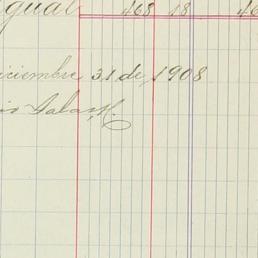 igual 468 18 46
iciembre 31 de 1908
io Salas H.